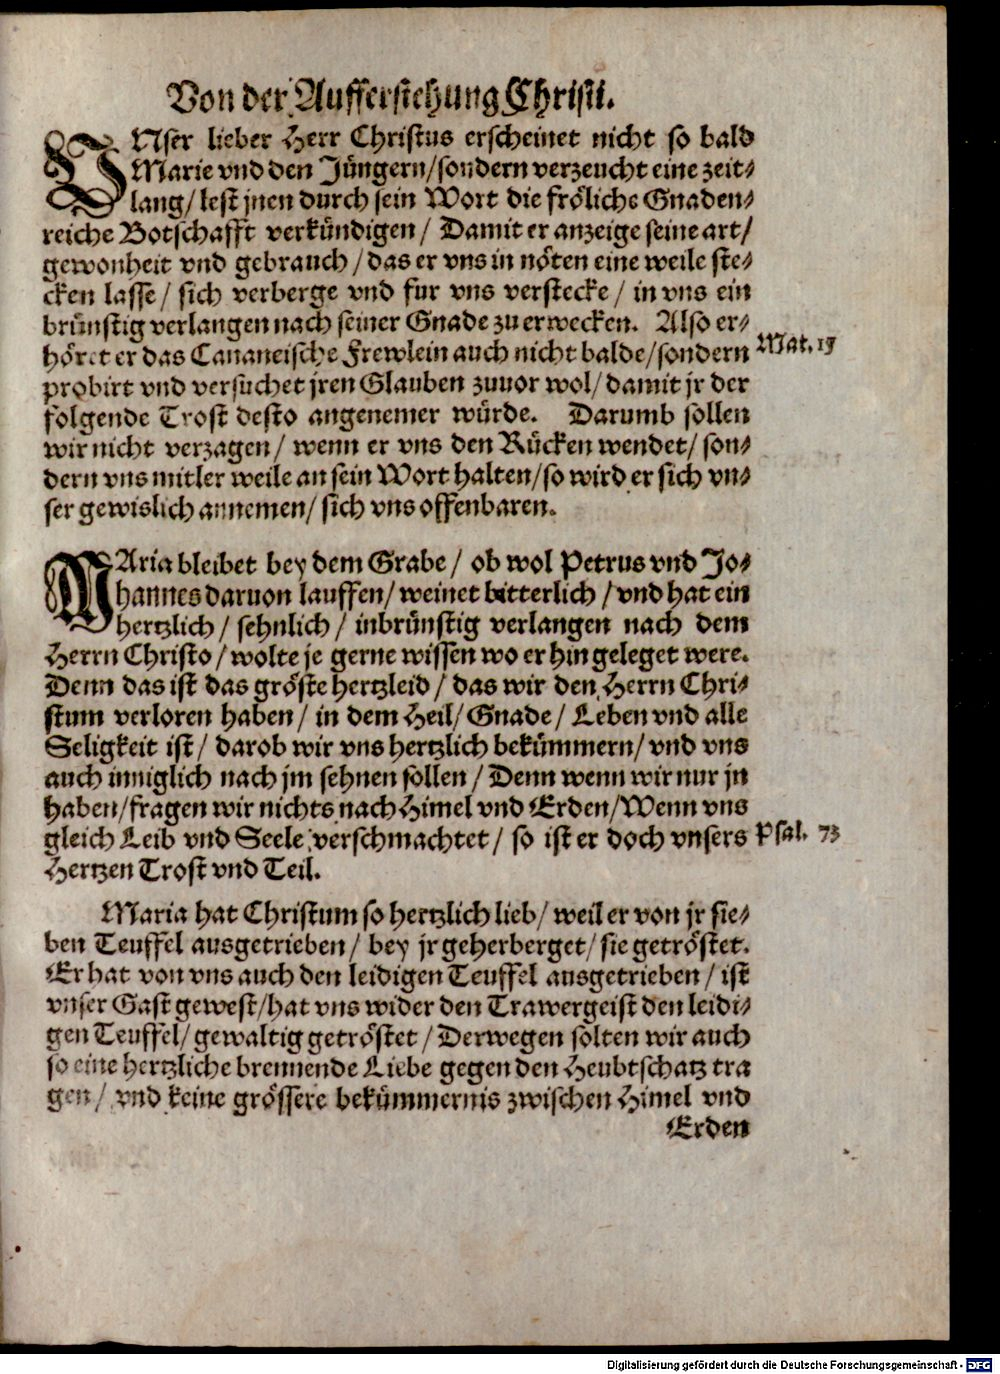 Von der Aufferstehung Christi.
VNser lieber Herr Christus erscheinet nicht so bald
Marie vnd den Jüngern/sondern verzeucht eine zeit-
lang/ lest jnen durch sein Wort die fröliche Gnaden-
reiche Botschafft verkündigen/ Damit er anzeige seine art/
gewonheit vnd gebrauch/das er vns in nöten eine weile ste-
cken lasse/ sich verberge vnd fur vns verstecke/ in vns ein
brünstig verlangen nach seiner Gnade zu erwecken. Also er-
höret er das Cananeische Frewlein auch nicht balde/sondern Mat. 15
probirt vnd versuchet jren Glauben zuuor wol/ damit jr der
folgende Trost desto angenemer würde. Darumb sollen
wir nicht verzagen/ wenn er vns den Rücken wendet/ son-
dern vns mitler weile an sein Wort halten/so wird er sich vn-
ser gewislich annemen/ sich vns offenbaren.
MAria bleibet bey dem Grabe/ ob wol Petrus vnd Jo-
hannes daruon lauffen/ weinet bitterlich/vnd hat ein
hertzlich/ sehnlich/ inbrünstig verlangen nach dem
Herrn Christo/ wolte je gerne wissen wo er hin geleget were.
Denn das ist das gröste hertzleid/ das wir den Herrn Chri-
stum verloren haben/ in dem Heil/ Gnade/ Leben vnd alle
Seligkeit ist/ darob wir vns hertzlich bekümmern/ vnd vns
auch inniglich nach jm sehnen sollen/ Denn wenn wir nur jn
haben/fragen wir nichts nach Himel vnd Erden/Wenn vns
gleich Leib vnd Seele verschmachtet/ so ist er doch vnsers Psal. 73
Hertzen Trost vnd Teil.
Maria hat Christum so hertzlich lieb/ weil er von jr sie-
ben Teuffel ausgetrieben/ bey jr geherberget/ sie getröstet.
Er hat von vns auch den leidigen Teuffel ausgetrieben/ ist
vnser Gast gewest/hat vns wider den Trawergeist den leidi-
gen Teuffel/ gewaltig getröstet/ Derwegen solten wir auch
so eine hertzliche brennende Liebe gegen den Heubtschatz tra
gen/ vnd keine grössere bekümmernis zwischen Himel vnd
Erden
Digitalisierung gefördert durch die Deutsche Forschungsgemeinschaft - DFG